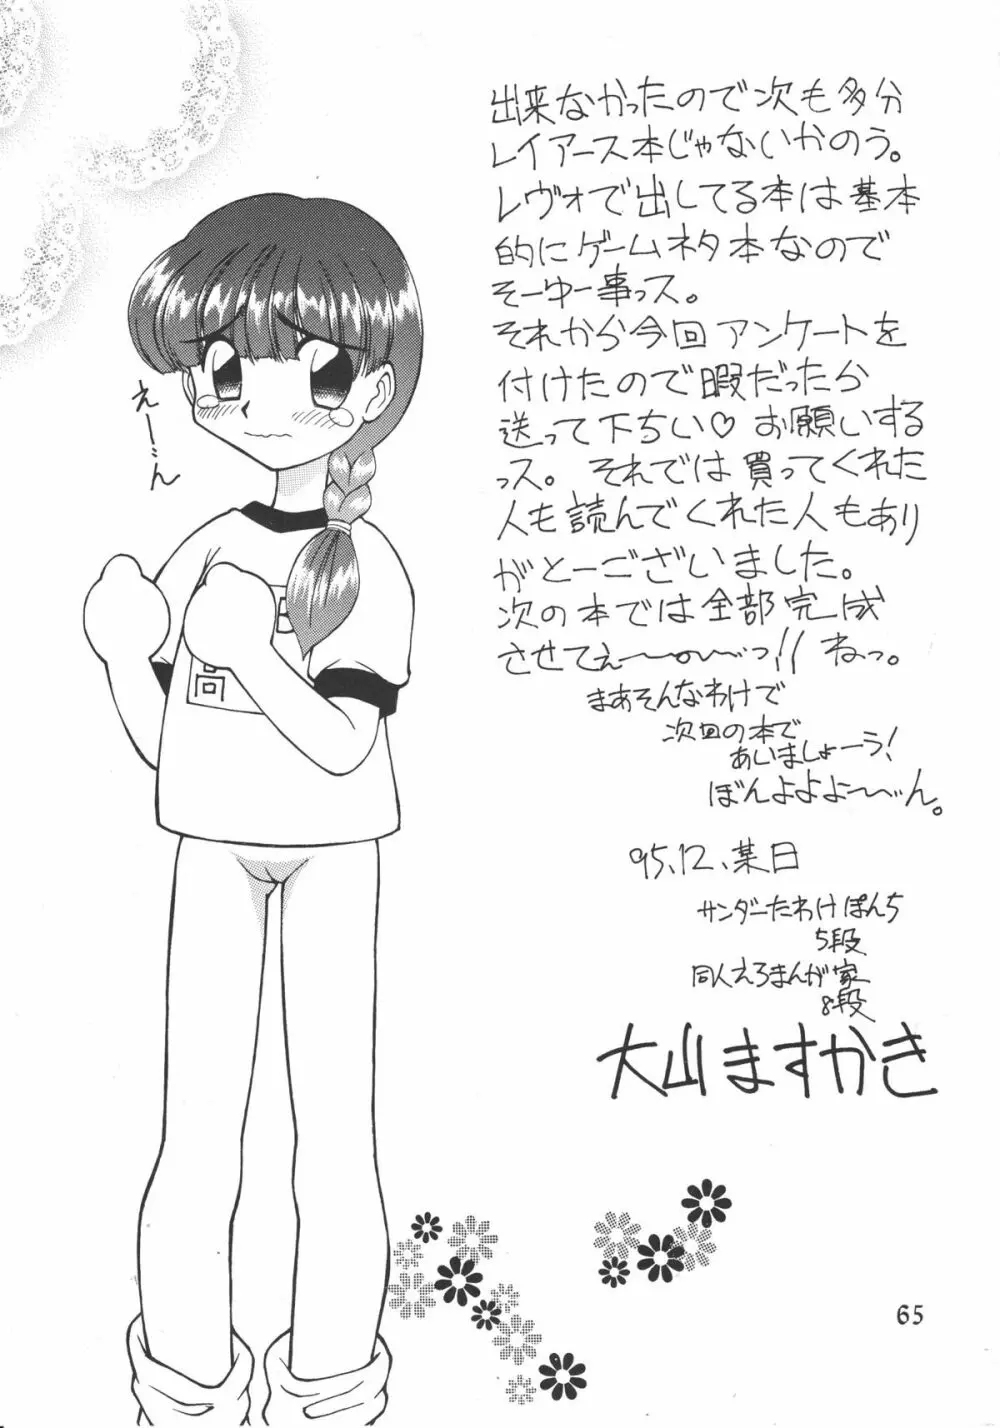 出来なかったので次も多分
レイアース本じゃないかのう。
レヴォで出してる本は基本
的にゲームネタ本なので
そーゆー事っス。
それから今回アンケートを
付けたので暇だったか
送って下ちい♡お願いする
っス。それでは買ってくれた
人も読んでくれた人もあり
がとーございました。
次の本では全部完成
させてぇ〜〜〜っ!!ねっ。
まあそんなわけで
次回の本で
あいましょーう!
ぼんよよよ〜〜ん。
えーーん
B
高
95.12.某日
サンダーたわけぽんち
5段
同人えろまんが家
8段
大山ますかき
65